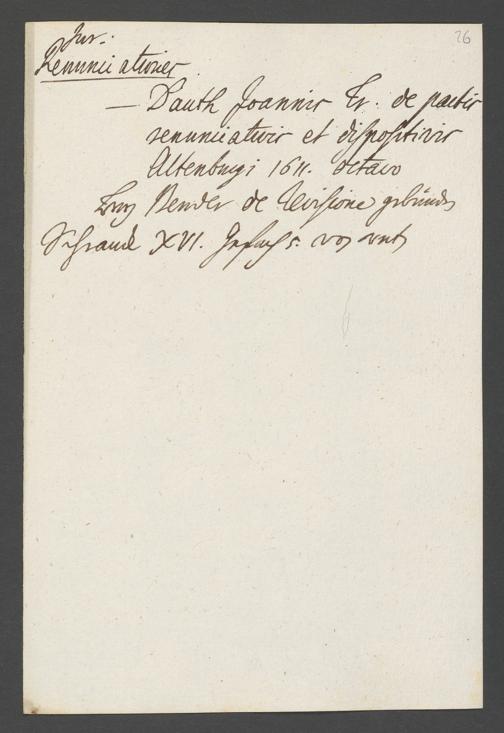 26
Jur.
Renunciationes
— Dauth Joannis Tr. de pactis
renunciativis et dispositivis
Altenburgi 1611. octavo
Bender de Revisione gebunden
Schrank XVI. Gefach 5. von unt